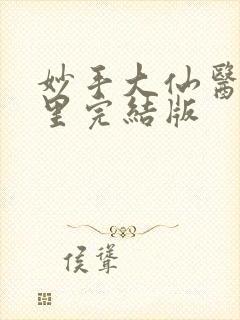 妙手大仙醫
里完結版
侯聳